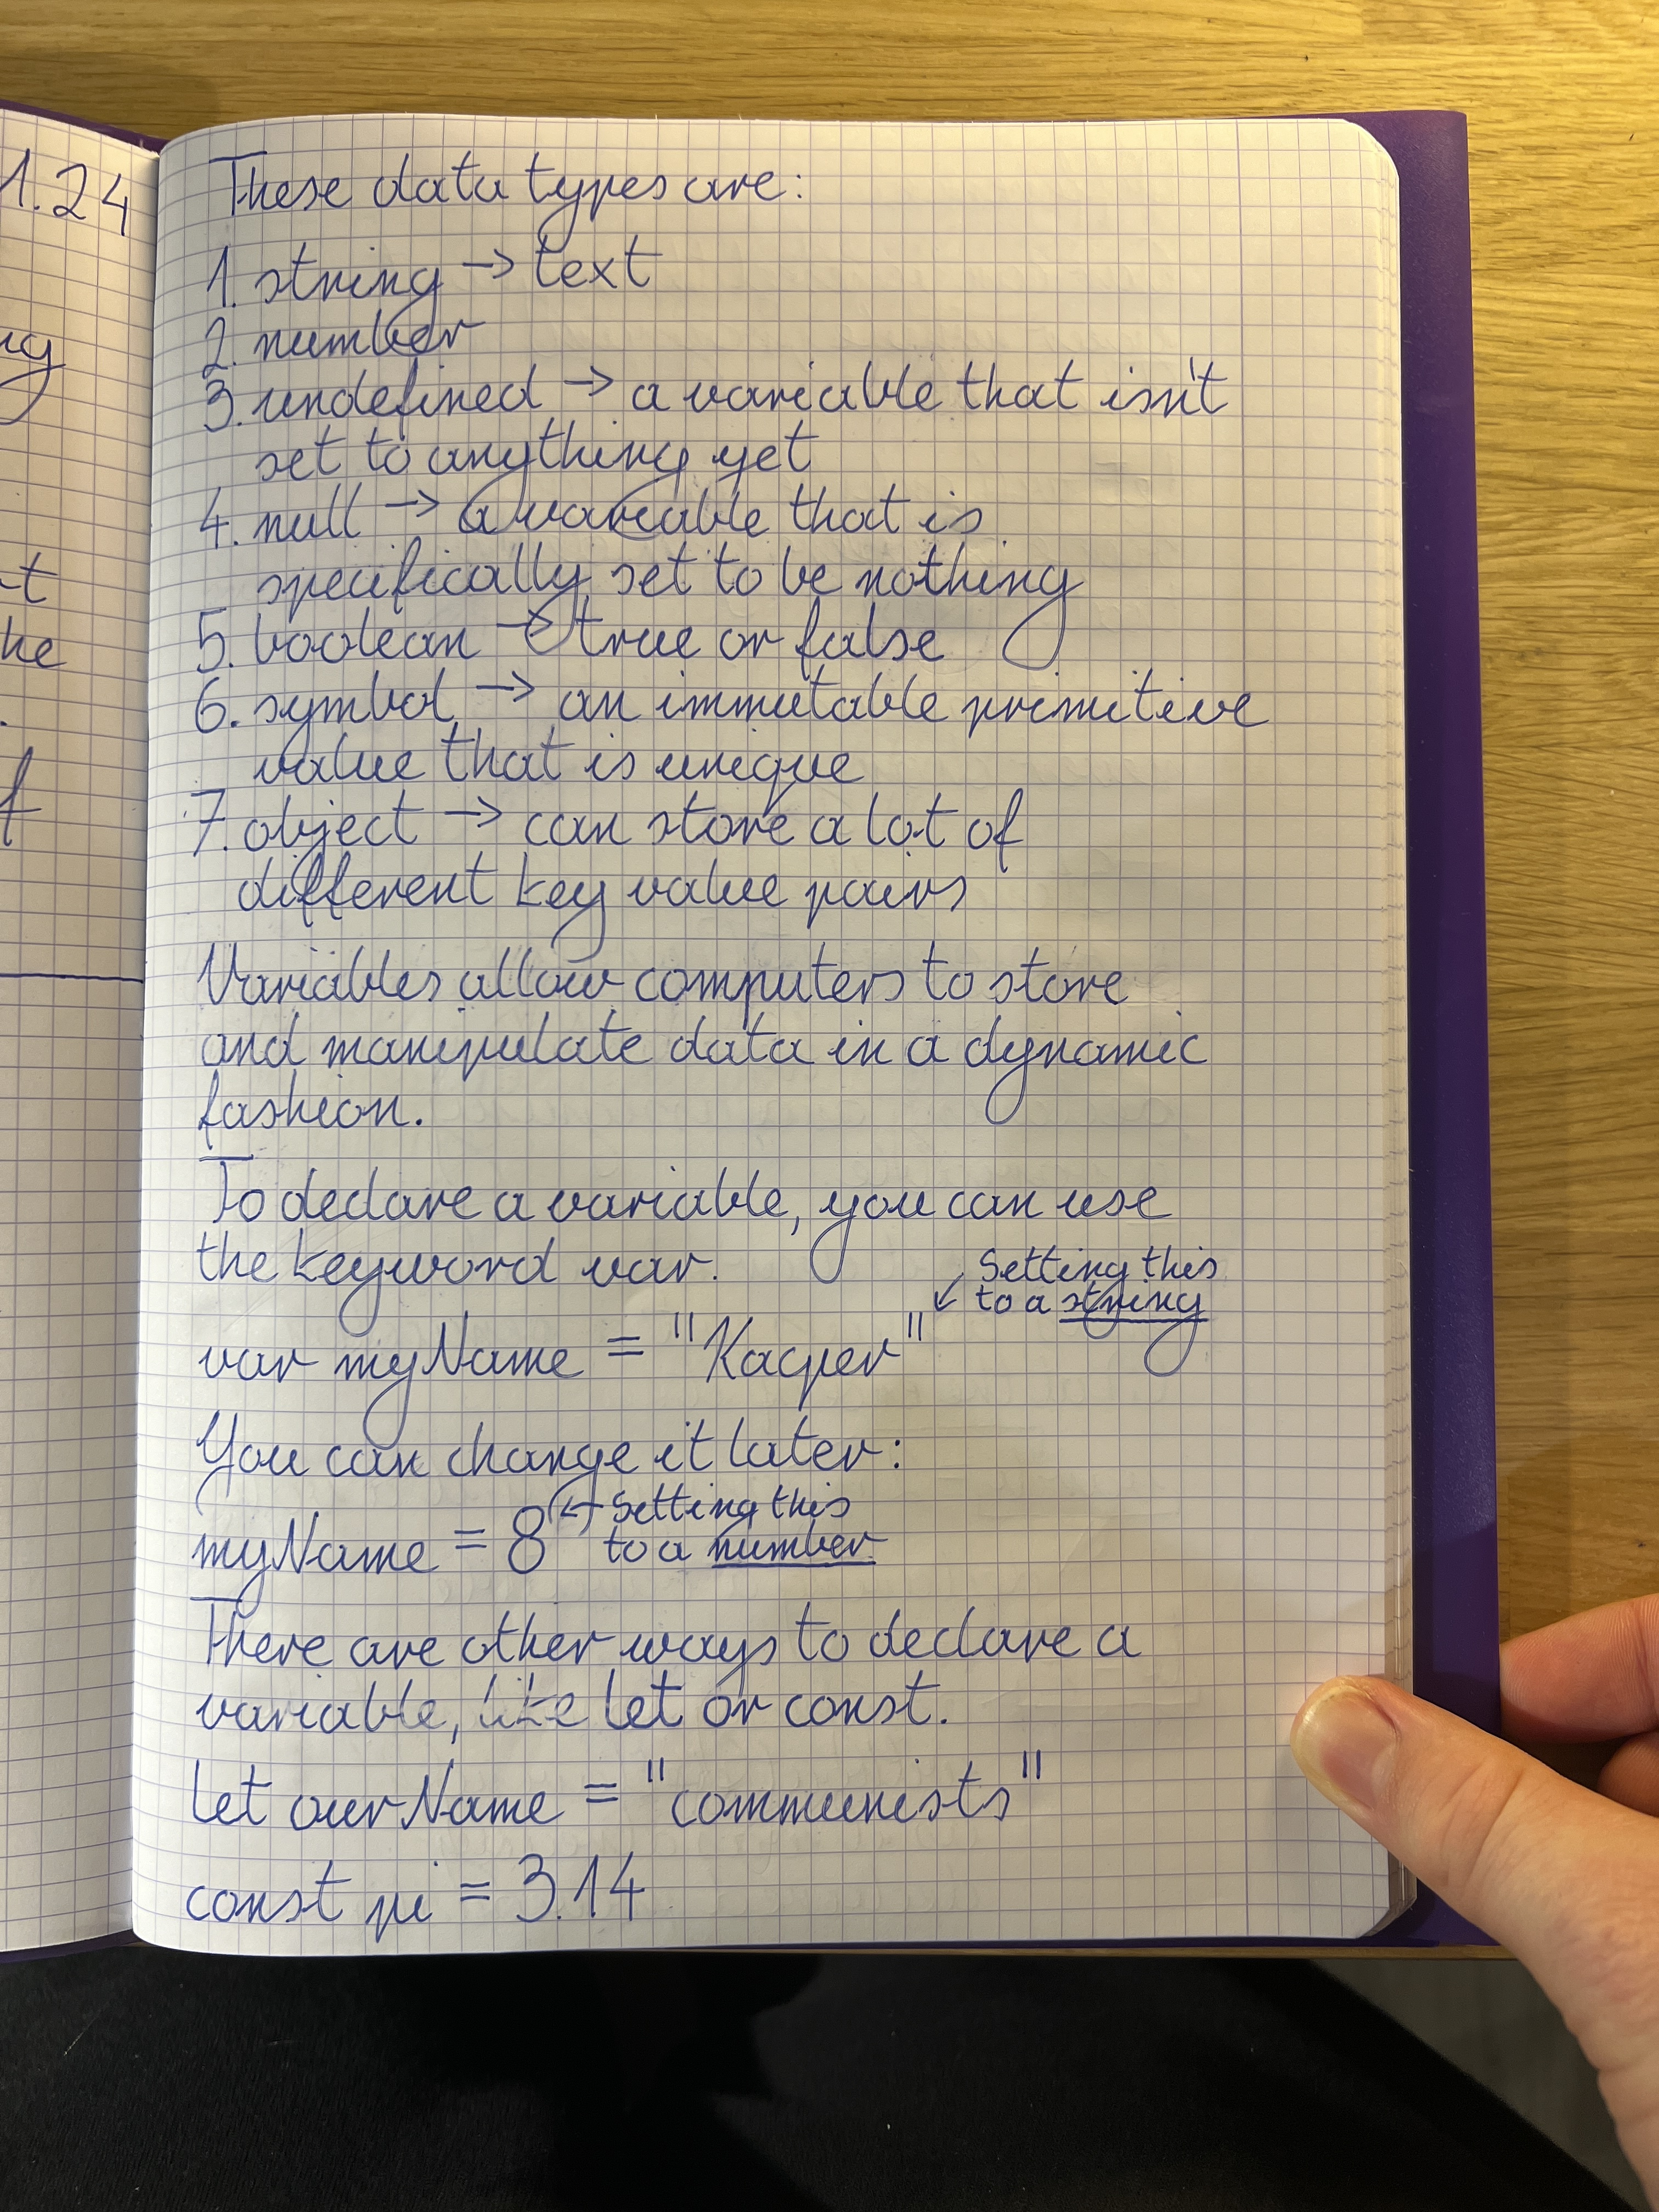 1.24
These data types are:
1. string → text
2. number
3. undefined → a variable that isn't
set to anything yet
4. null → a variable that is
specifically set to be nothing
5. boolean → true or false
6. symbol → an immutable primitive
value that is unique
7. object → can store a lot of
different key value pairs
Variables allow computers to store
and manipulate data in a dynamic
fashion.
To declare a variable, you can use
the keyword var.
Setting this
↙ to a string
var myName = "Kacper"
You can change it later:
← Setting this
myName = 8 to a number
There are other ways to declare a
variable, like let or const.
let ourName = "communists"
const pi = 3.14